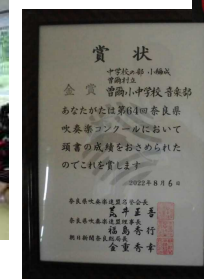 賞状
中学校の部 小編成
曽爾村立
金賞 曽爾小中学校 音楽部
あなたがたは第64回奈良県
吹奏楽コンクールにおいて
頭書の成績をおさめられた
のでこれを賞します
2022年8月6日
奈良県吹奏楽連盟名誉会長
荒井正吾
奈良県吹奏楽連盟理事長
福島秀行
朝日新聞奈良総局長